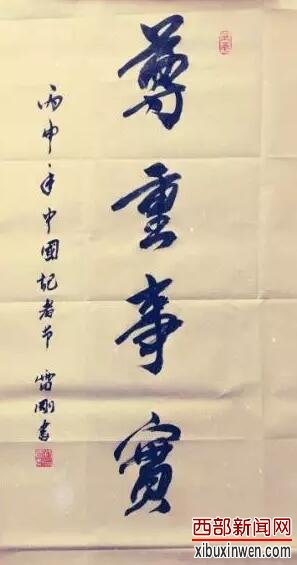 尊重事實
丙申年中國記者节 雷剛書
西部新闻网
xibuxinwen.com